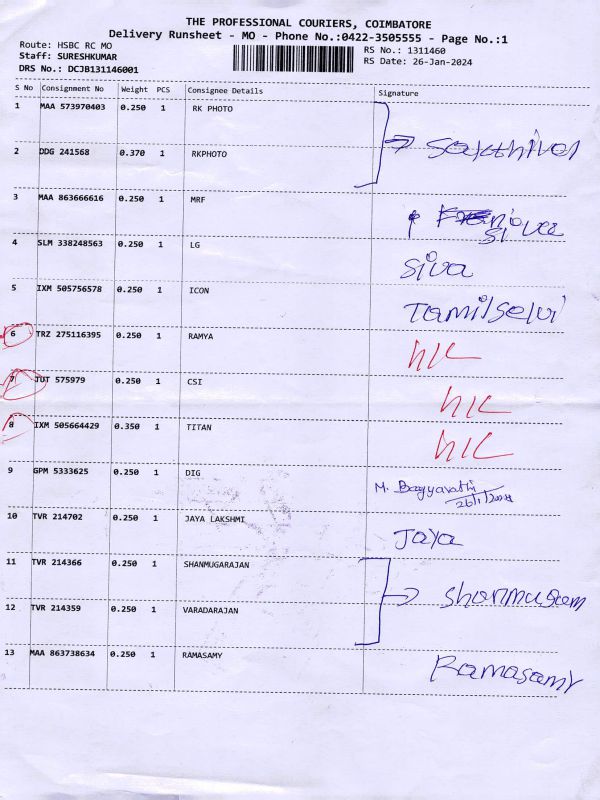 THE PROFESSIONAL COURIERS, COIMBATORE
Delivery Runsheet - MO - Phone No.:0422-3505555 - Page No.:1
Route: HSBC RC MO RS No.: 1311460
Staff: SURESHKUMAR RS Date: 26-Jan-2024
DRS No.: DCJB131146001
S No Consignment No Weight PCS Consignee Details Signature
1 MAA 573970403 0.250 1 RK PHOTO
Sakthivel
2 DDG 241568 0.370 1 RKPHOTO
3 MAA 863666616 0.250 1 MRF
4 SLM 338248563 0.250 1 LG
Siva
5 IXM 505756578 0.250 1 ICON
Tamilselvi
6 TRZ 275116395 0.250 1 RAMYA
h/L
7 JUT 575979 0.250 1 CSI
h/L
8 IXM 505664429 0.350 1 TITAN
h/L
9 GPM 5333625 0.250 1 DIG
M. Bagyavathi
26/1/2024
10 TVR 214702 0.250 1 JAYA LAKSHMI
Jaya
11 TVR 214366 0.250 1 SHANMUGARAJAN
Shanmugam
12 TVR 214359 0.250 1 VARADARAJAN
13 MAA 863738634 0.250 1 RAMASAMY
Ramasamy